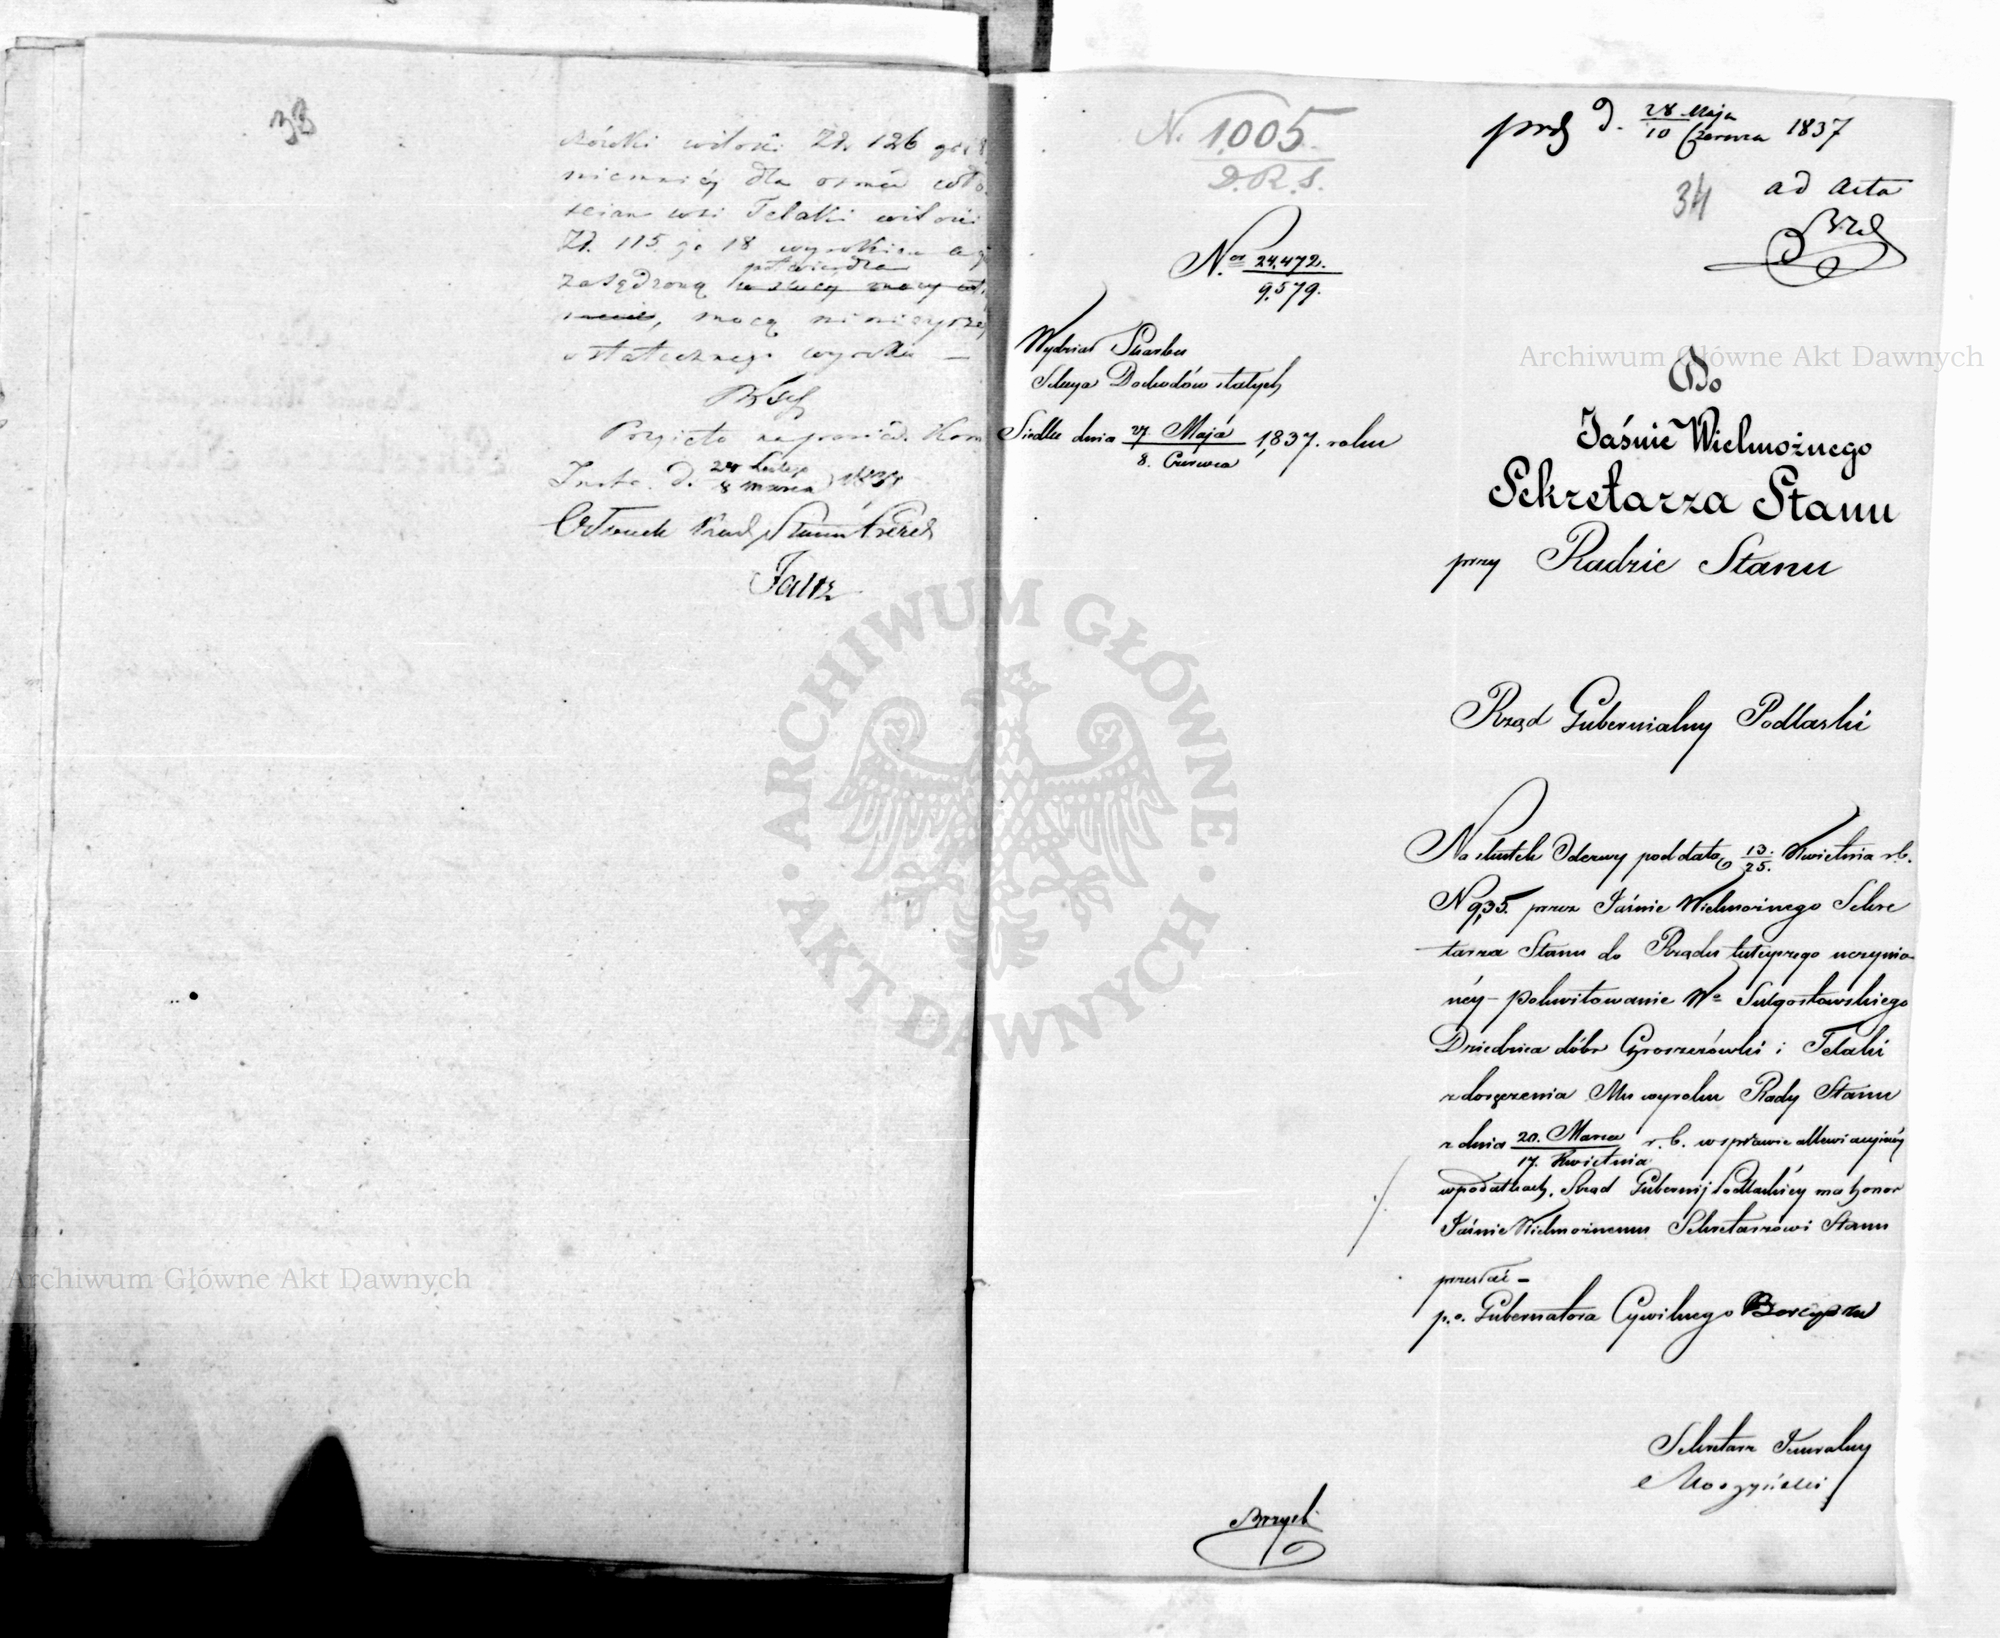 33
zówki w ilości Zł. 126 gr. 8
niemniéj dla osmiu wło-
scian wsi Telaki w ilości
Zł. 115 gr 18 wyrokiem
potwierdza
zasądzoną
mocą niniejszeg
ostatecznego wyroku —
Przyięto na posied. Kom
Instr. d. 24 Lutego / 8 Marca
Członek Rady Stanu
N. 1,005.
D.R.S.
Nor 24,472. / 9,579.
Wydział Skarbu
Sekcya Dochodów stałych
Siedlce dnia 27 Maja / 8. Czerwca 1,837. roku
prd d. 28 Maja / 10 Czerwca 1837
34
ad acta
Archiwum Główne Akt Dawnych
Do
Jaśnie Wielmożnego
Sekretarza Stanu
przy Radzie Stanu
Rząd Gubernialny Podlaski
Na skutek Odezwy pod datą 13/25. Kwietnia r.b.
N 935. przez Jaśnie Wielmożnego Sekre
tarza Stanu do Rządu tuteyszego uczynio-
néy – pokwitowanie Wo Sulgostowskiego
Dziedzica dóbr Groszczówki i Telaki
z doręczenia Mu wyroku Rady Stanu
z dnia 20. Marca / 17. Kwietnia r.b. w sprawie allewiacyjnéj
w podatkach, Rząd Gubernij Podlaskiéy ma honor
Jaśnie Wielmożnemu Sekretarzowi Stanu
przesłać –
p.o. Gubernatora Cywilnego
Sekretarz Jeneralny
ARCHIWUM GŁÓWNE
AKT DAWNYCH
Archiwum Główne Akt Dawnych